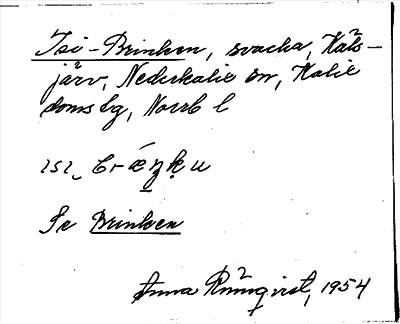 Isi-Brinken, svacka, Käts-
järv, Nederkalix sn, Kalix
domsbg, Norrb l
Se Brinken
Anna Rönnqvist, 1954